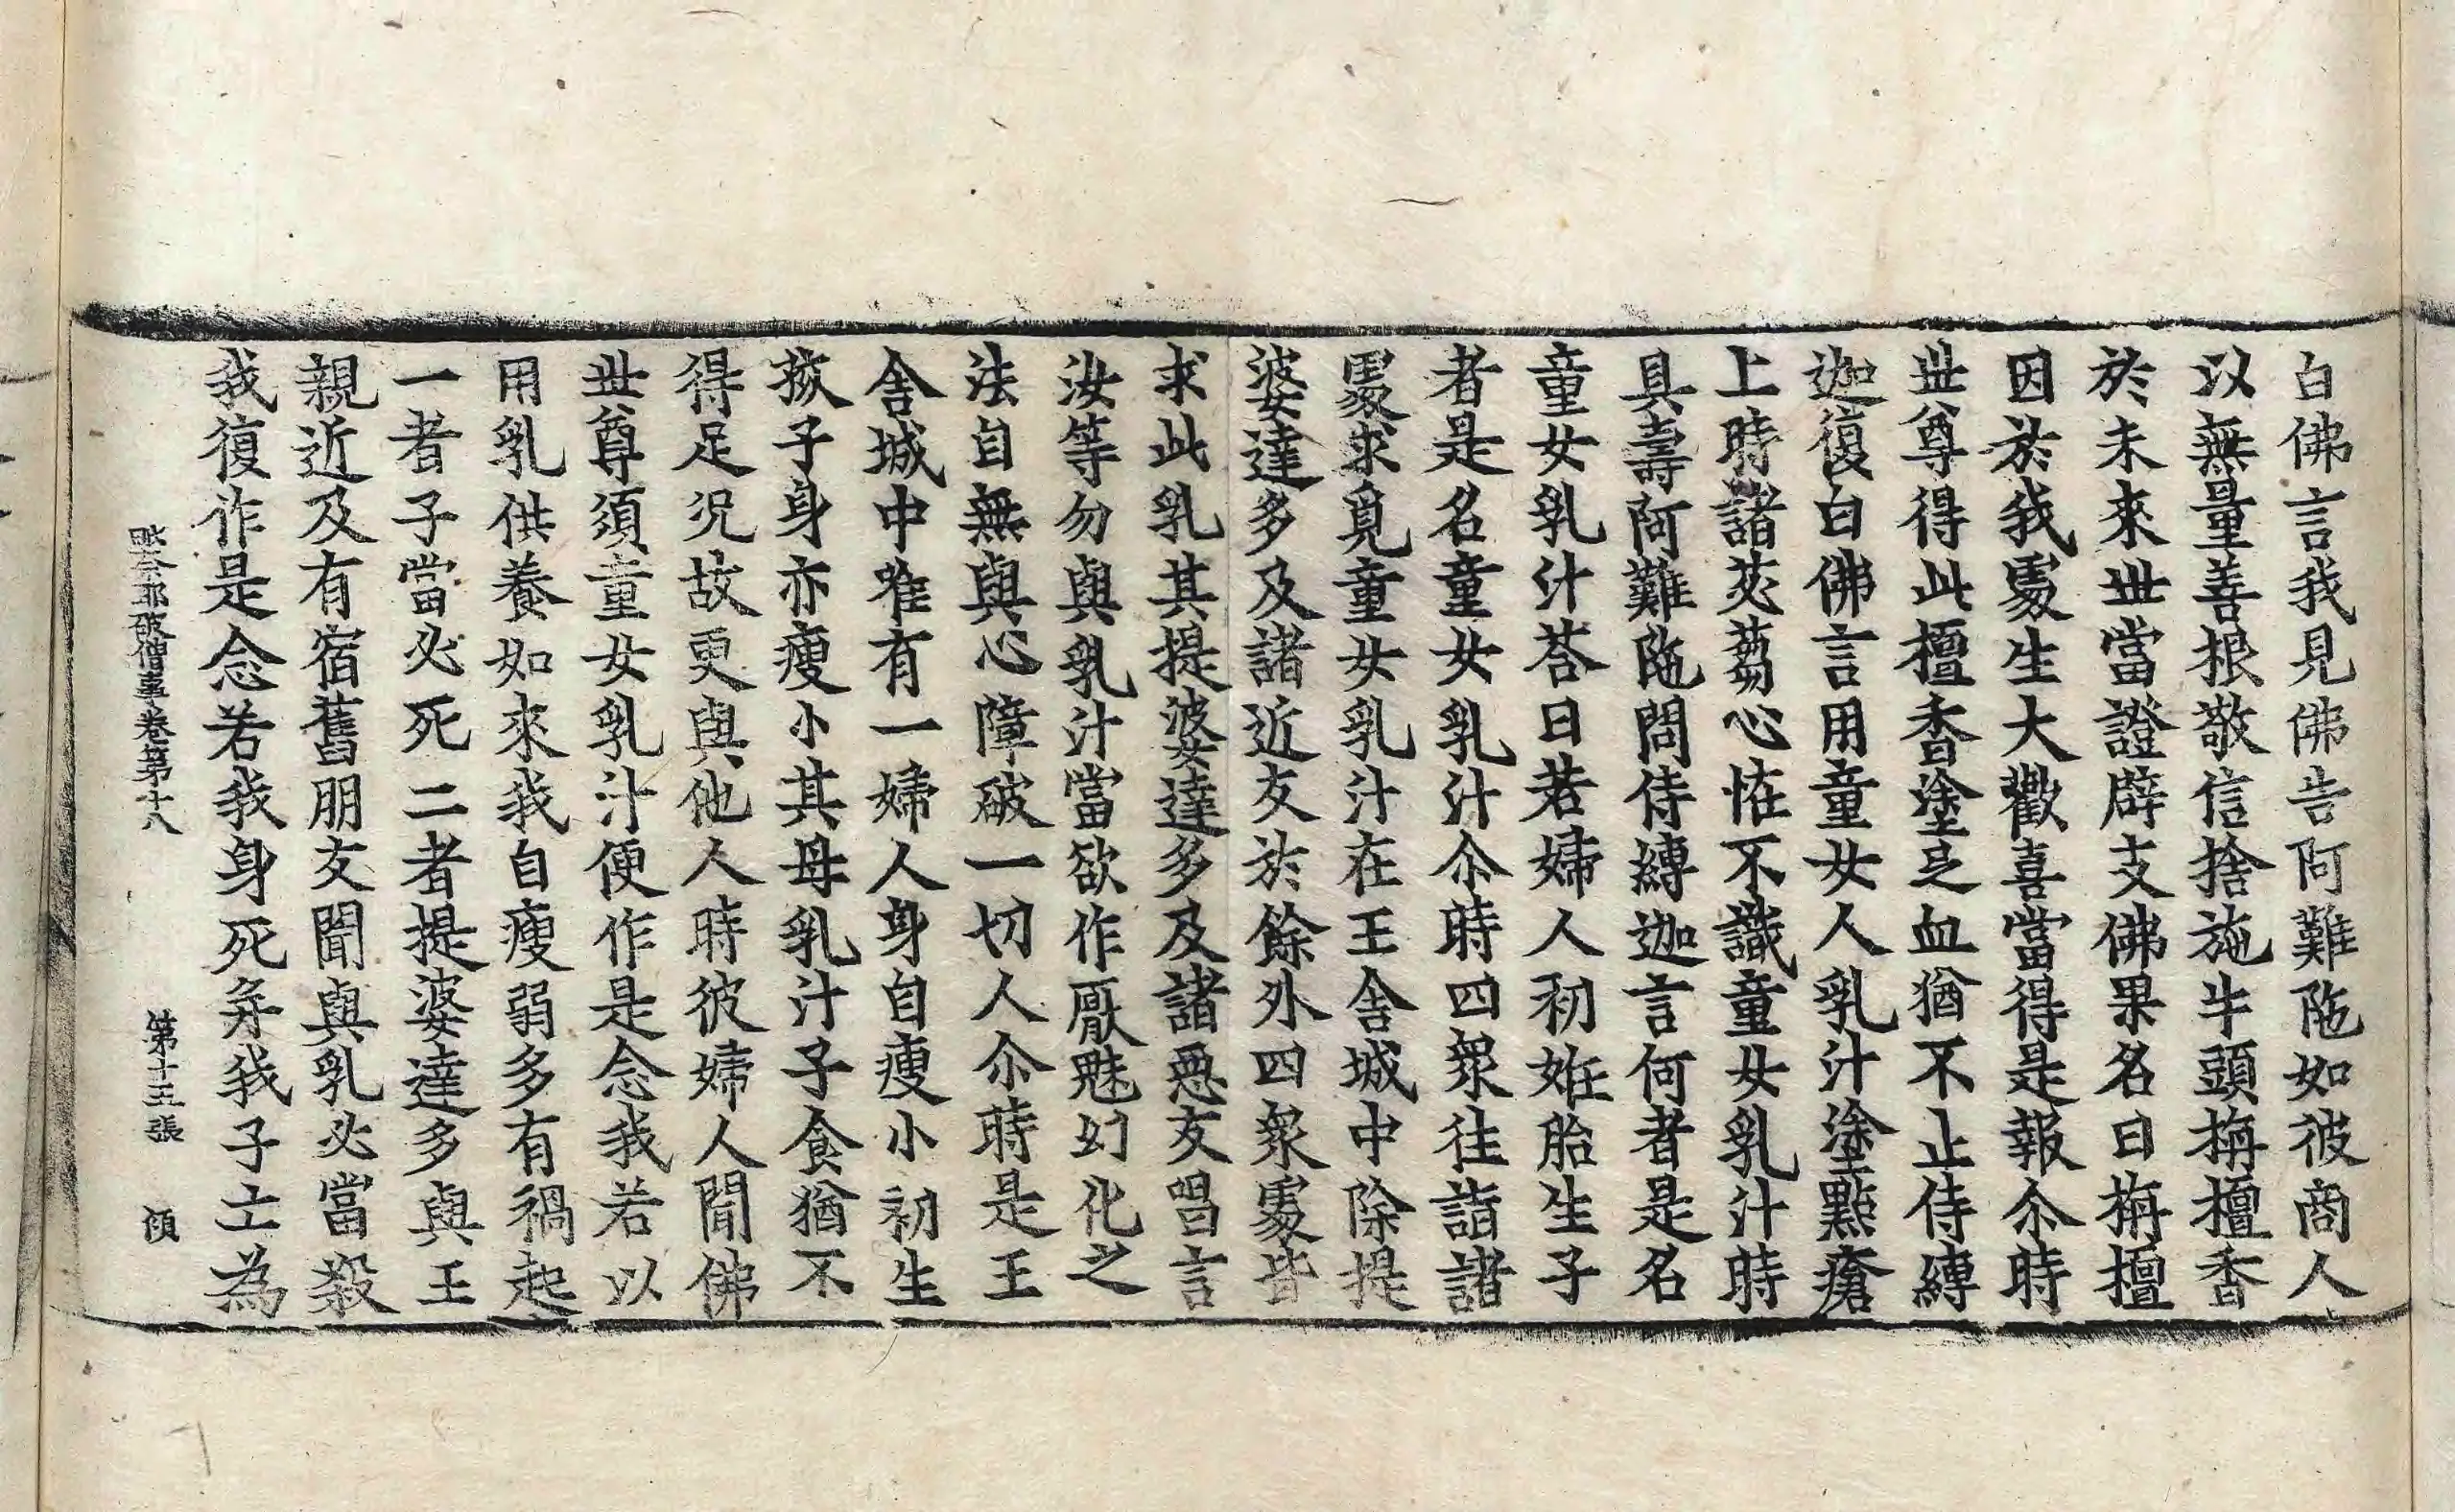 白佛言我見佛告阿難陁如彼商人
以無量善根敬信捨施牛頭栴檀香
於未來世當證辟支佛果名曰栴檀
因於我處生大歡喜當得是報尒時
世尊得此檀香塗之血猶不止侍縛
迦復白佛言用童女人乳汁塗點瘡
上時諸苾蒭心怪不識童女乳汁時
具壽阿難陁問侍縛迦言何者是名
童女乳汁荅曰若婦人初姙胎生子
者是名童女乳汁尒時四衆往詣諸
處求覓童女乳汁在王舍城中除提
婆達多及諸近友於餘外四衆處皆
求此乳其提婆達多及諸惡友唱言
汝等勿與乳汁當欲作厭魅幻化之
法自無與心障破一切人尒時是王
舍城中唯有一婦人身自瘦小初生
孩子身亦瘦小其母乳汁子食猶不
得足況故更與他人時彼婦人聞佛
世尊須童女乳汁便作是念我若以
用乳供養如來我自瘦弱多有禍起
一者子當必死二者提婆達多與王
親近及有宿舊朋友聞與乳必當殺
我復作是念若我身死弃我子土為
破僧事卷第十八 第十五張